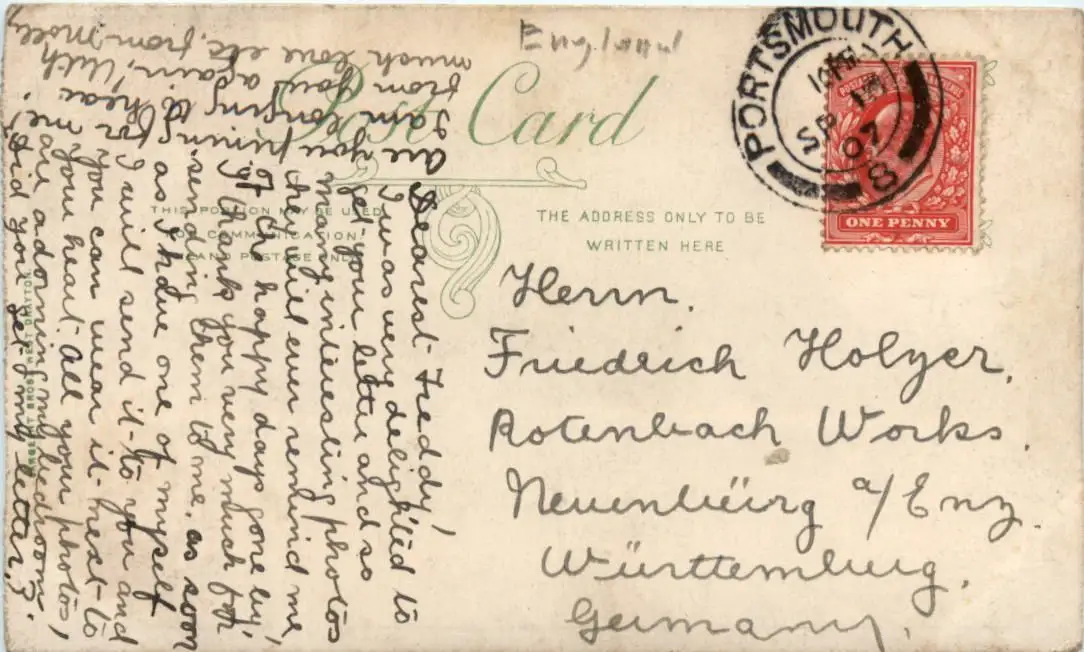 England
Post Card
PORTSMOUTH
SP
07
8
ONE PENNY
THIS PORTION MAY BE USED
COMMUNICATION
POSTAGE ONLY
THE ADDRESS ONLY TO BE
WRITTEN HERE
Herrn.
Friedrich Holyer.
Rotenbach Works.
Neuenbürg a/Enz.
Württemburg.
Germany.
Dearest Freddy,
I was very delighted to
get your letter and so
many interesting photos
they will ever remind me,
of the happy days gone by,
I thank you very much for
sending them to me. as soon
as I have one of myself
I will send it to you and
you can wear it next to
your heart. All your photos,
are adorning my bedroom
Did you get my letter?
are you pining for me?
I am longing to hear
from you again! With
much love etc, from Molly.
BROS. WEST DRAYTON